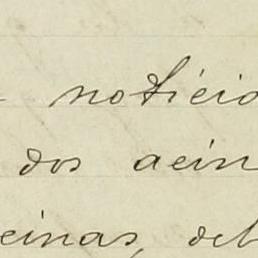 noticio
dos aein
einas, deb